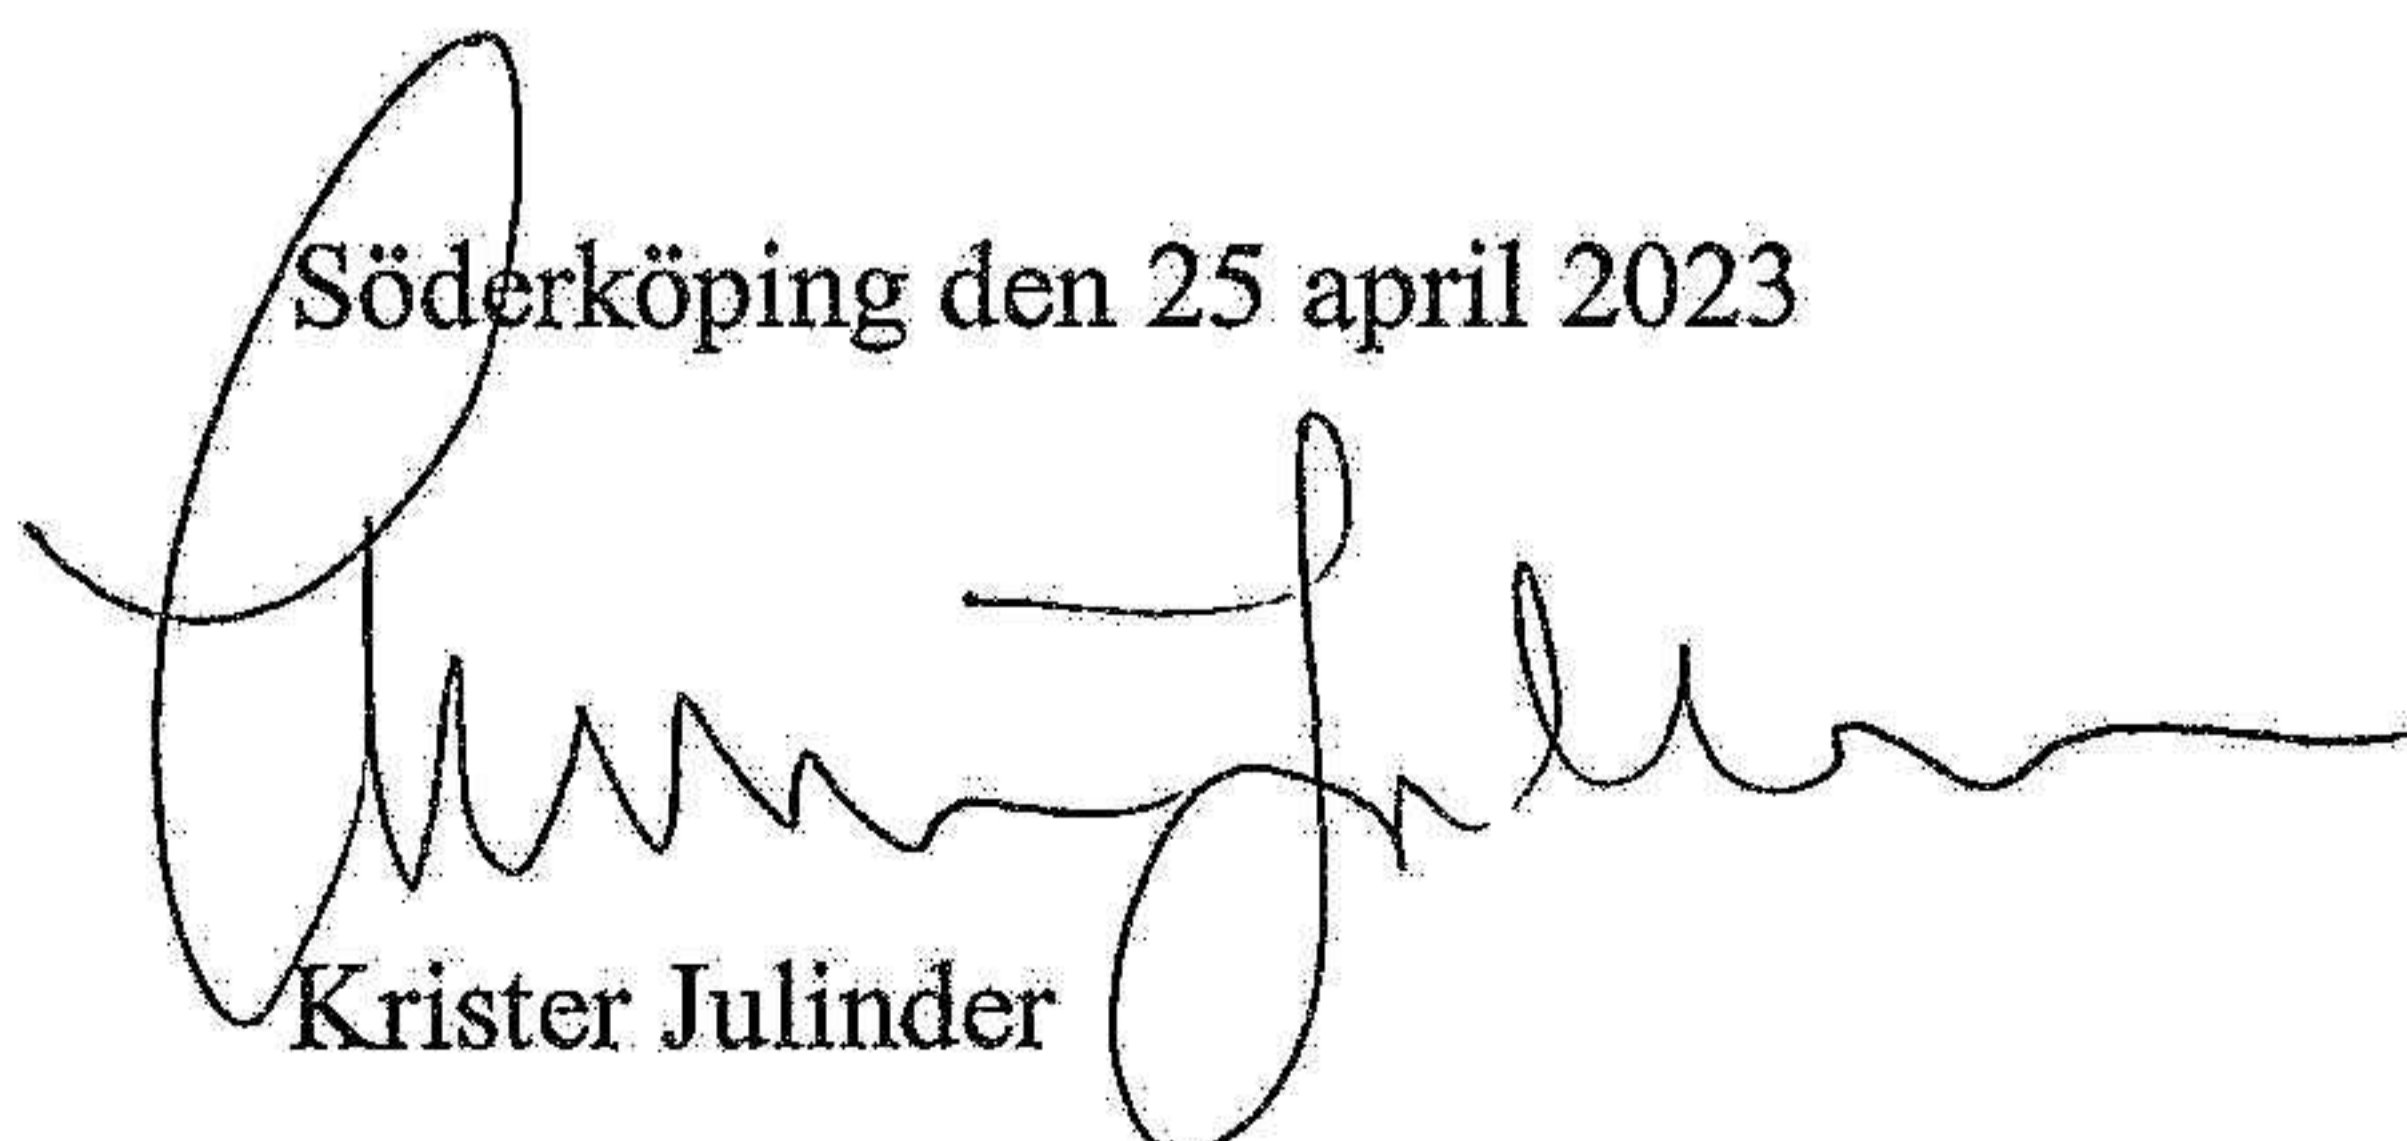 Söderköping den 25 april 2023
Krister Julinder